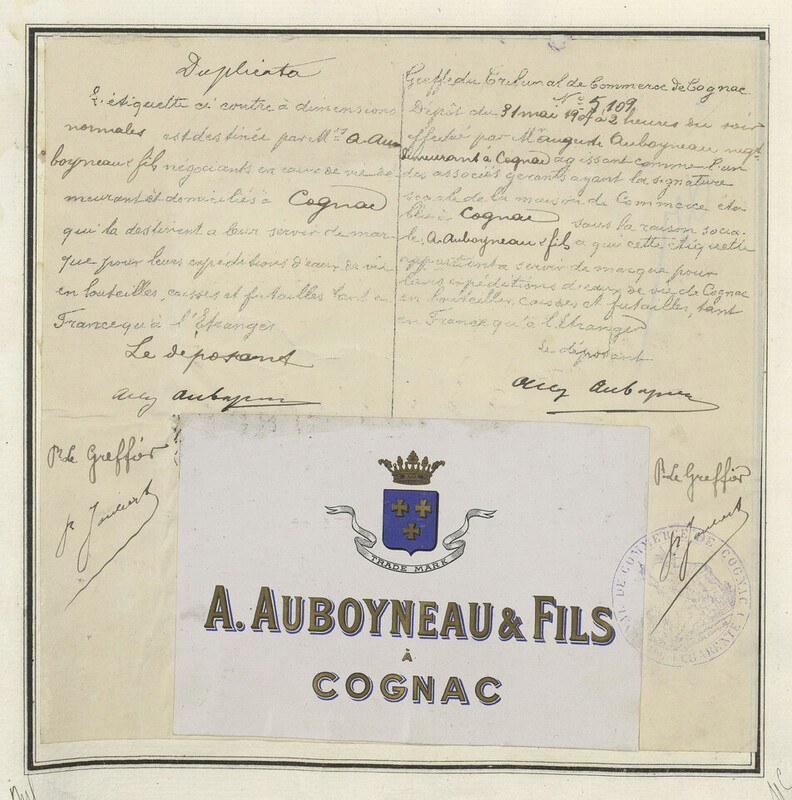 Duplicata
L'étiquette ci contre à dimensions
normales est destinée par Mrs A. Au
boyneau & fils négociants en eaux de vie de
meurant et domiciliés à Cognac
qui la destinent a leur servir de mar
que pour leurs expéditions d'eaux de vie
en bouteilles, caisses et futailles tant en
France qu'à l'Etranger
Le deposant
Aug Auboyneau
P. Le Greffier
Greffe du Tribunal de Commerce de Cognac
No 5,109
Dépôt du 31 mai 1907 à 2 heures du soir
effectué par Mr Auguste Auboyneau negt
demeurant à Cognac agissant comme l'un
des associés gerants ayant la signature
sociale de la maison de Commerce éta
blie à Cognac sous la raison socia
le, A. Auboyneau & fils a qui cette étiquette
appartient a servir de marque pour
leurs expéditions d'eaux de vie de Cognac
en bouteilles, caisses et futailles, tant
en France qu'à l'étranger
Le déposant
Aug Auboyneau
P. Le Greffier
TRADE MARK
A. AUBOYNEAU & FILS
À
COGNAC
DE COMMERCE DE COGNAC
(CHARENTE)